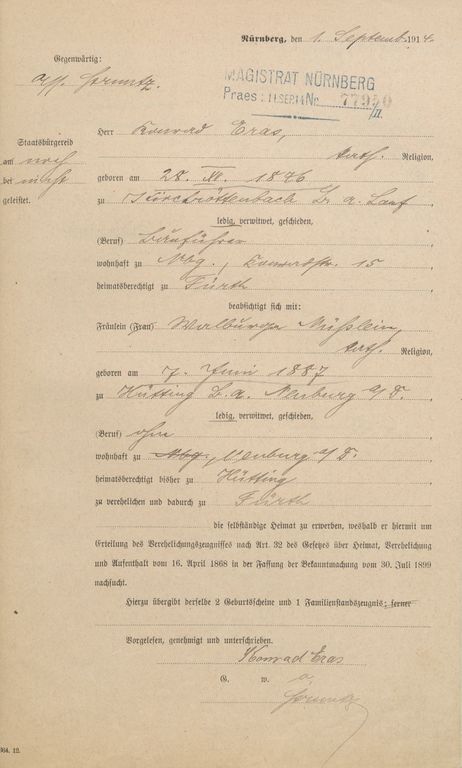 Nürnberg, den 1. Septemb. 1914.
Gegenwärtig:
MAGISTRAT NÜRNBERG
Praes: 11.SEP.14 No 77950
/II.
Herr Konrad Eras,
kath. Religion,
Staatsbürgereid
am noch
bei nicht
geleistet.
geboren am 28. XI. 1876
zu Kirchröttenbach B. A. Lauf
ledig, verwitwet, geschieden,
(Beruf) Bauführer
wohnhaft zu Nbg., Konradstr. 15
heimatsberechtigt zu Fürth
beabsichtigt sich mit:
Fräulein (Frau) Walburga Nüßlein,
kath. Religion,
geboren am 7. Juni 1887
zu Hütting B. A. Neuburg a/D.
ledig, verwitwet, geschieden,
(Beruf) ohne
wohnhaft zu Nbg., Neuburg a/D.
heimatsberechtigt bisher zu Hütting
zu verehelichen und dadurch zu Fürth
die selbständige Heimat zu erwerben, weshalb er hiermit um
Erteilung des Verehelichungszeugnisses nach Art. 32 des Gesetzes über Heimat, Verehelichung
und Aufenthalt vom 16. April 1868 in der Fassung der Bekanntmachung vom 30. Juli 1899
nachsucht.
Hierzu übergibt derselbe 2 Geburtscheine und 1 Familienstandszeugnis; ferner
Vorgelesen, genehmigt und unterschrieben.
Konrad Eras
G. w. o.